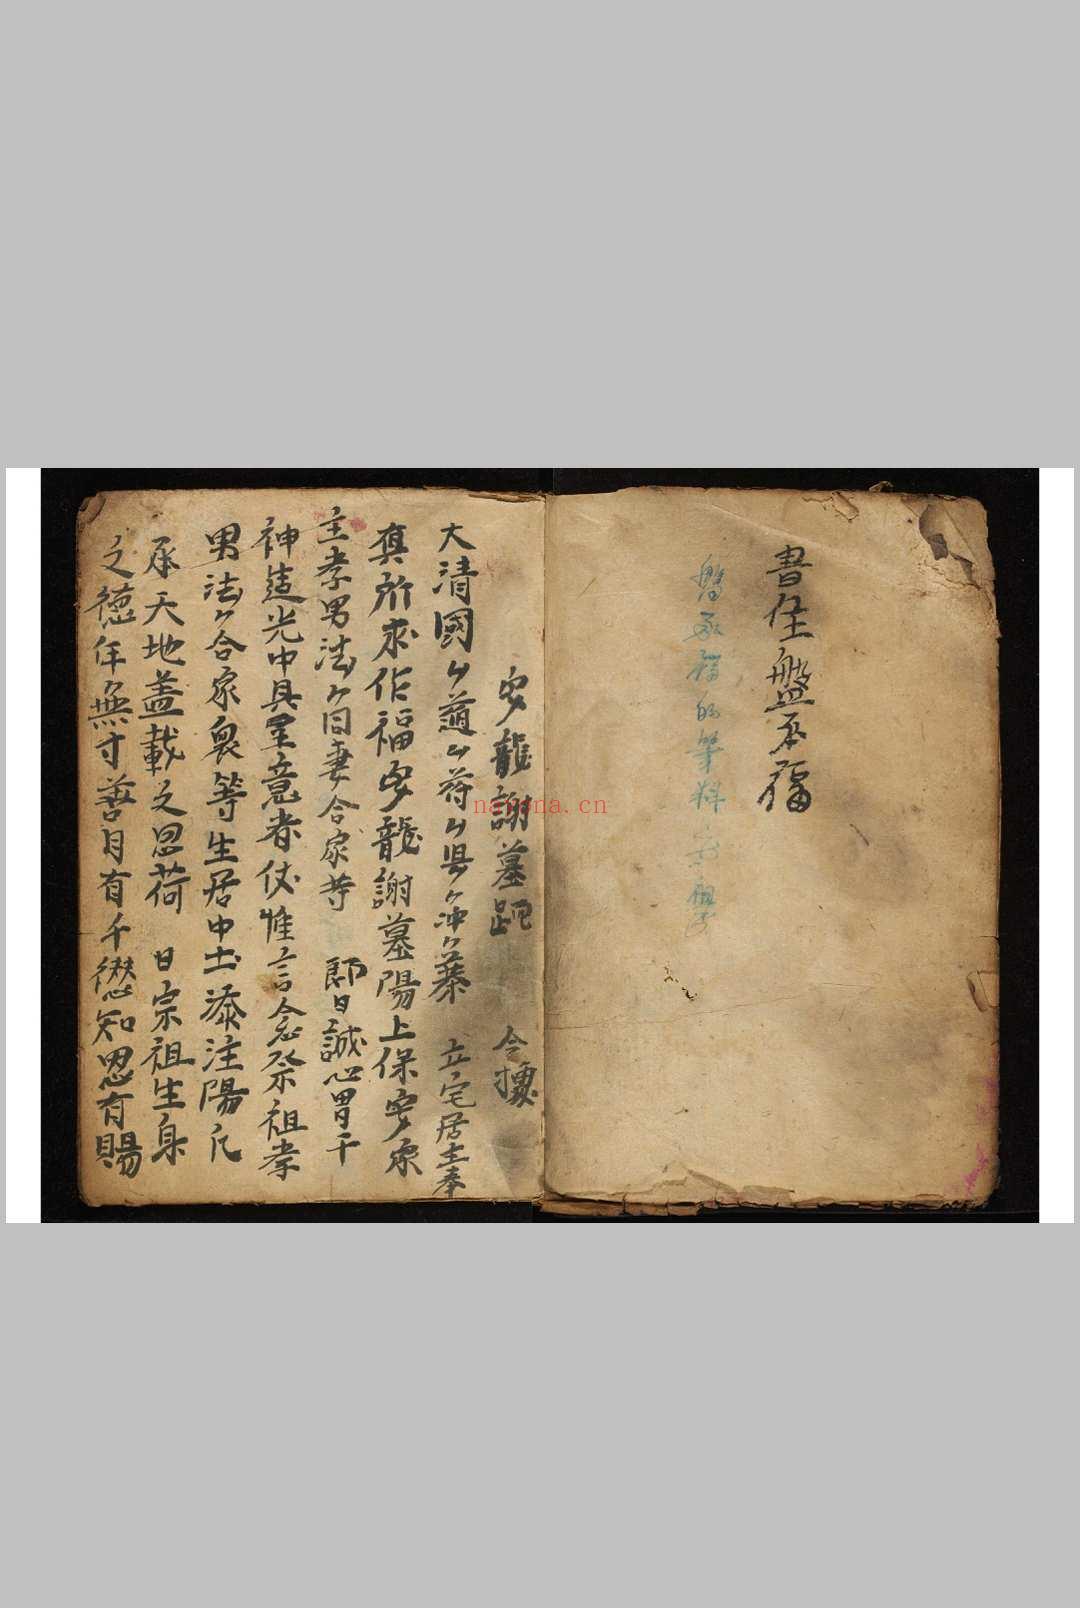 書住盤承福
安龍謝墓疏 今據
大清國 道 府 縣 冲 寨 立宅居主奉
真所求作福安龍謝墓陽上保安家
主孝男法 同妻合家等 即日誠心冒干
神造光中具呈意者伏惟言念祭祖孝
男法 合家眾等生居中土添注陽凡
承天地蓋載之恩荷 日宗祖生身
之德年無寸善月有千愆知恩有賜
nayona.cn